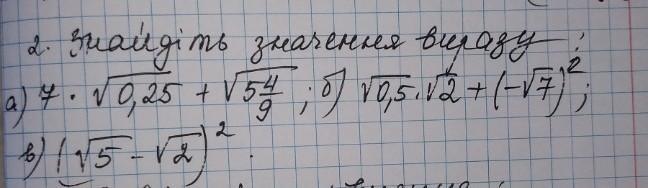 2. Знайдіть значення виразу:
а) 7 · √0,25 + √5 4/9 ; б) √0,5 · √2 + (-√7)² ;
в) (√5 - √2)² .